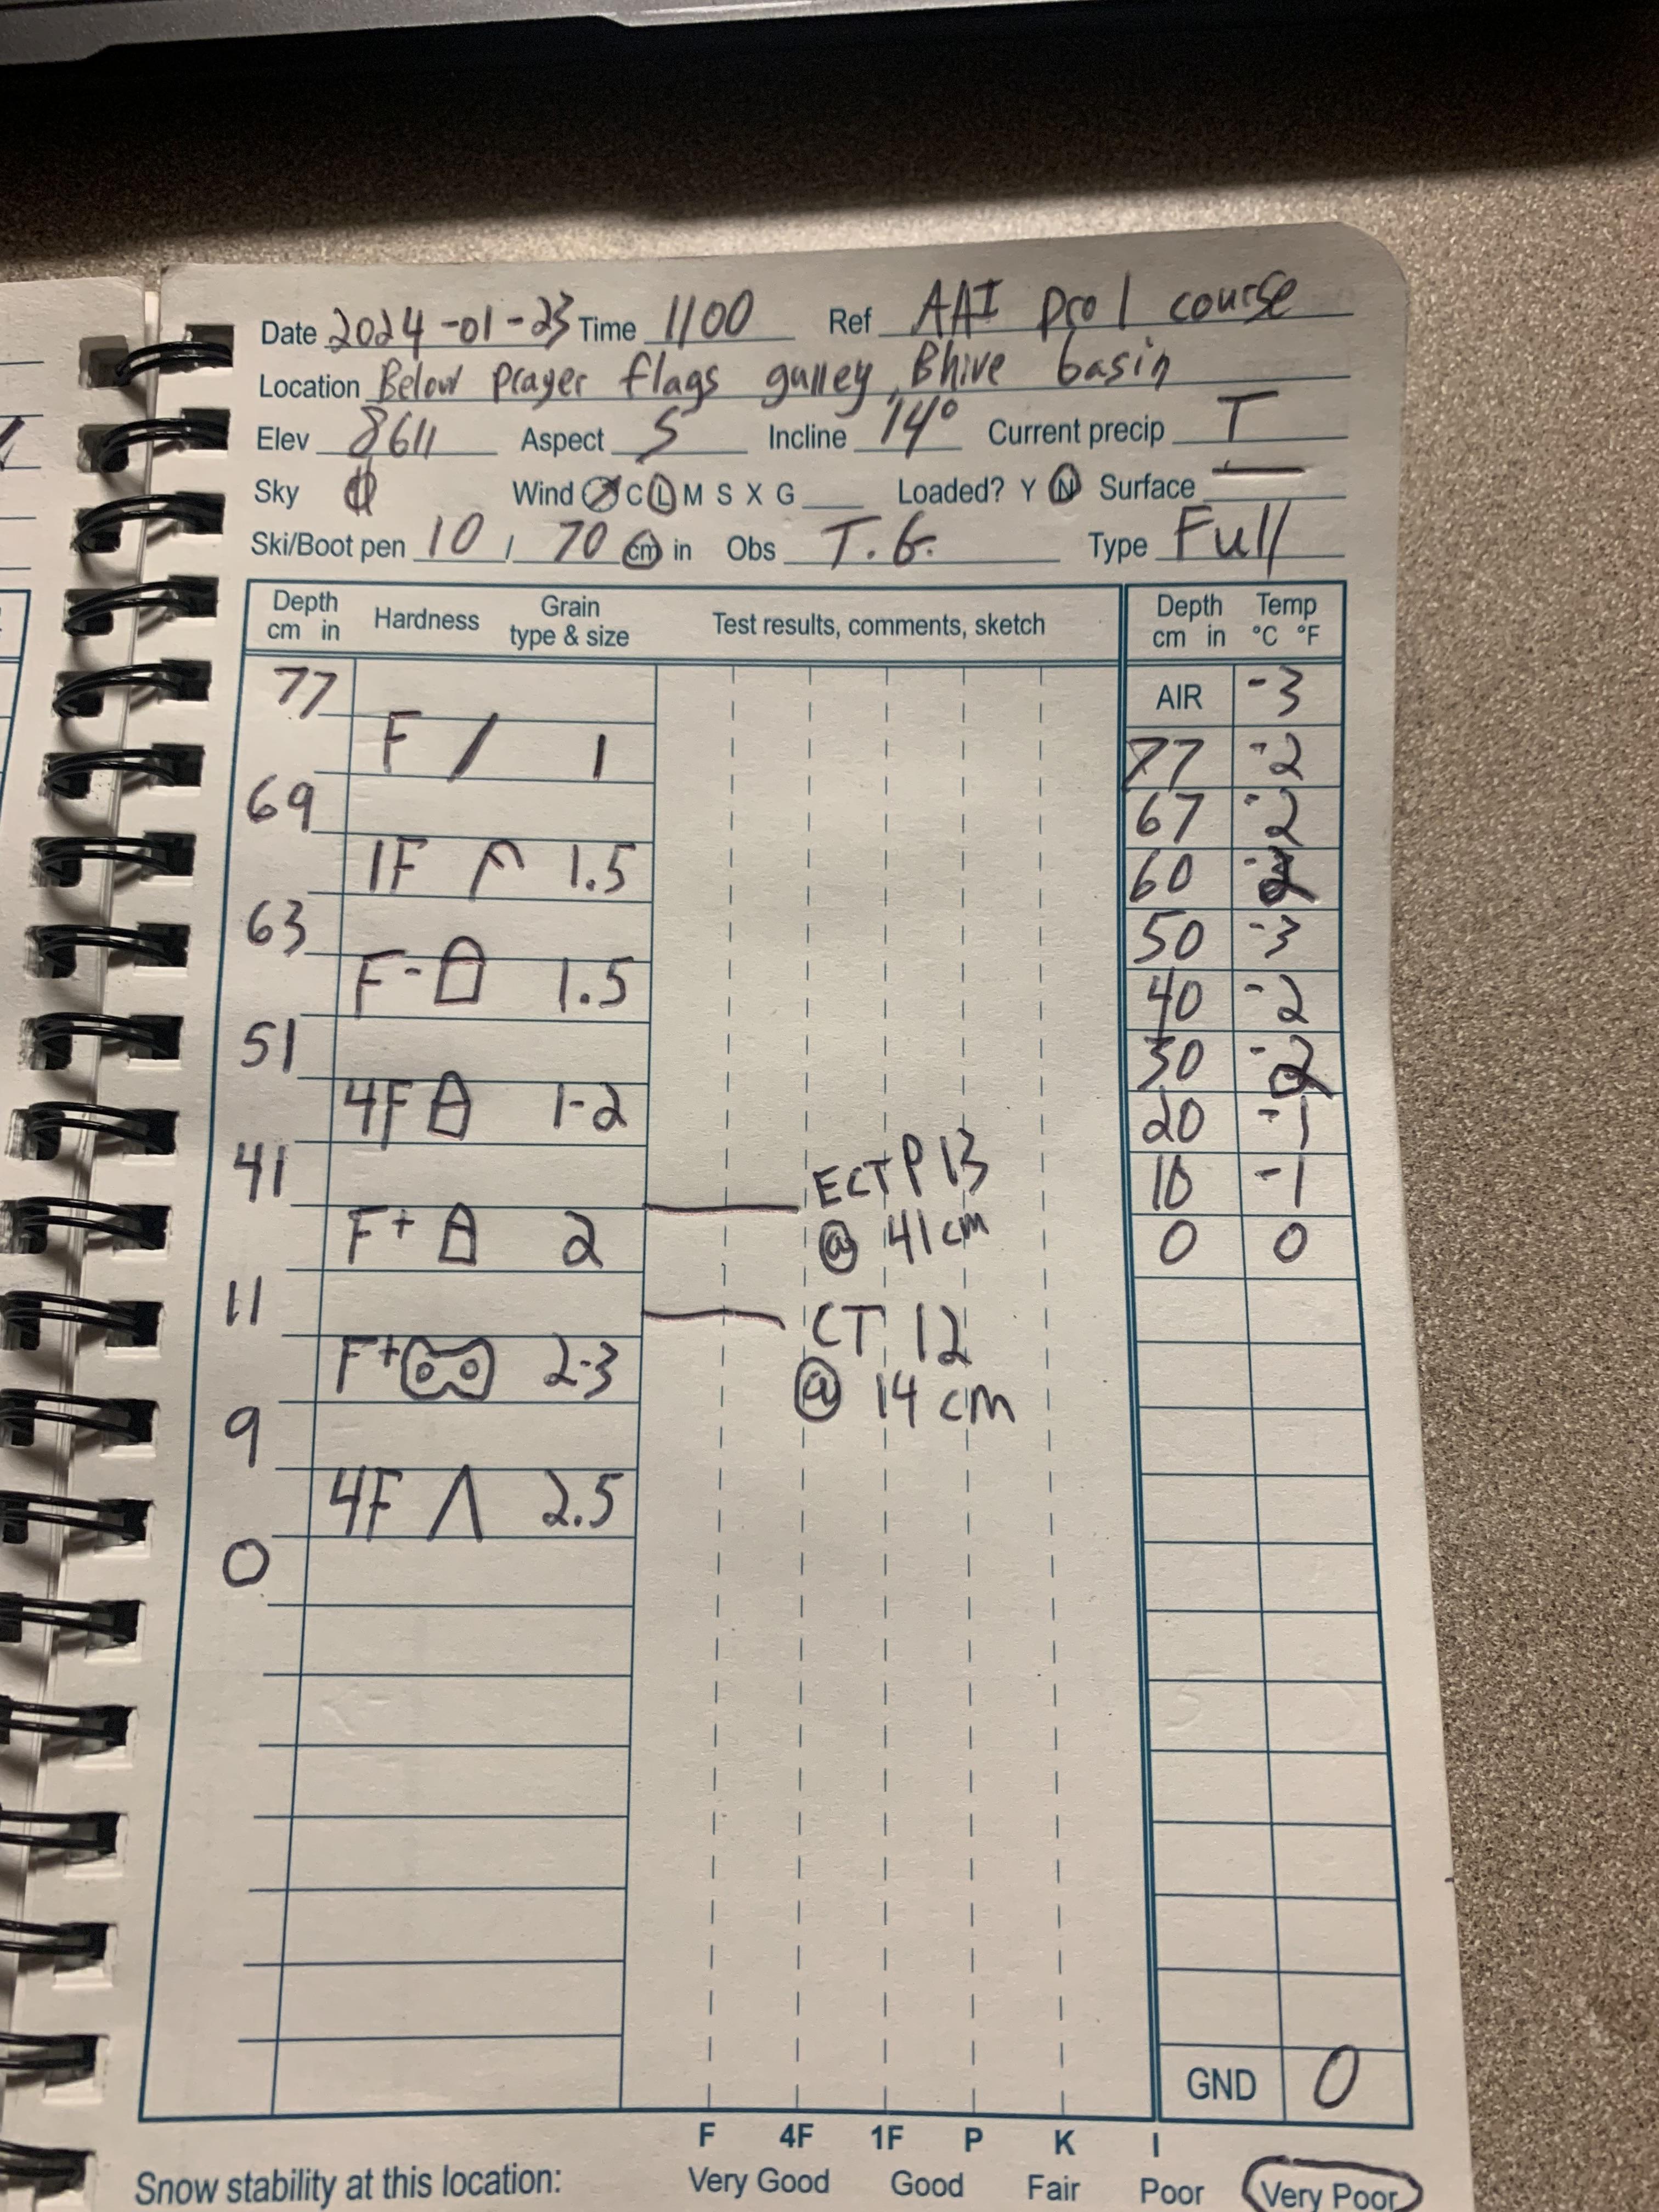 Date 2024-01-23 Time 1100 Ref AAI pro 1 course
Location Below prayer flags gulley, Bhive basin
Elev 8611 Aspect S Incline 14° Current precip T
Sky Wind C L M S X G Loaded? Y N Surface —
Ski/Boot pen 10 / 70 cm in Obs T.G. Type Full
Depth cm in Hardness Grain type & size Test results, comments, sketch Depth cm in Temp °C °F
77 AIR -3
F / 1 77 -2
69 67 -2
1F 1.5 60
63 50 -3
F- 1.5 40 -2
51 30 -2
4F 1-2 20 -1
41 ECTP13 10 -1
F+ 2 @ 41cm 0 0
11 CT 12
F+ 2-3 @ 14 cm
9
4F Λ 2.5
0
GND 0
F 4F 1F P K I
Snow stability at this location: Very Good Good Fair Poor Very Poor